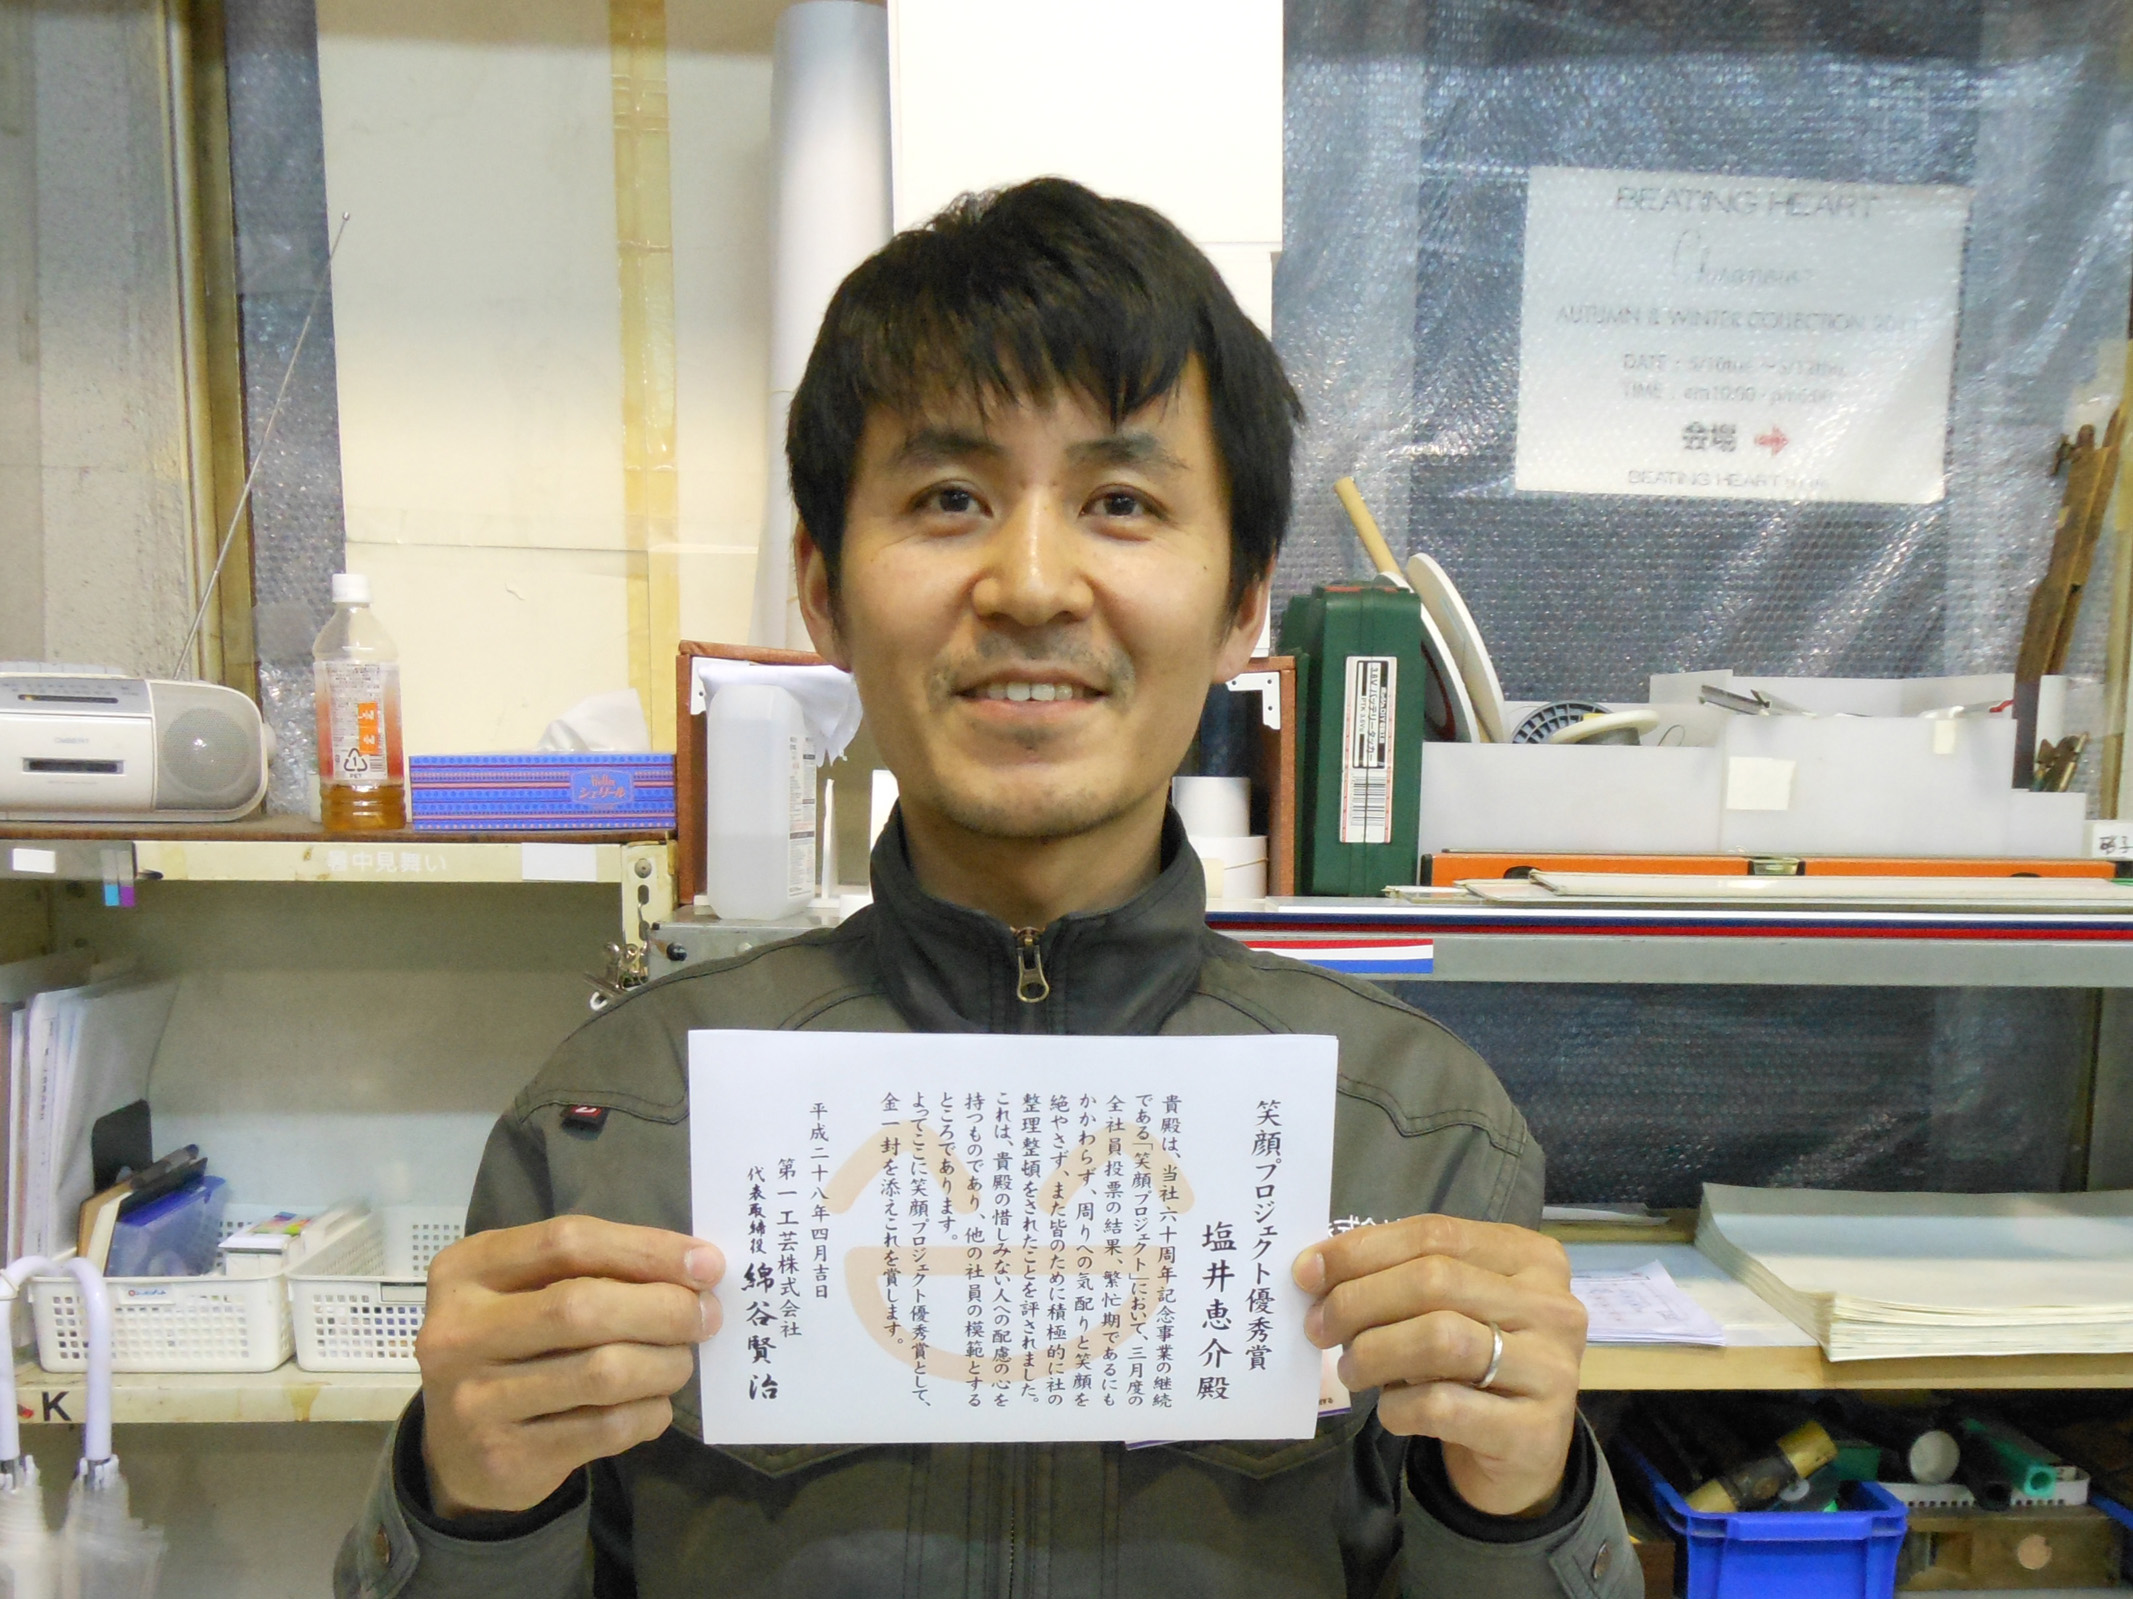 笑顔プロジェクト優秀賞
塩井恵介殿
貴殿は、当社六十周年記念事業の継続
である「笑顔プロジェクト」において、三月度の
全社員投票の結果、繁忙期であるにも
かかわらず、周りへの気配りと笑顔を
絶やさず、また皆のために積極的に社の
整理整頓をされたことを評されました。
これは、貴殿の惜しみない人への配慮の心を
持つものであり、他の社員の模範とする
ところであります。
よってここに笑顔プロジェクト優秀賞として、
金一封を添えこれを賞します。
平成二十八年四月吉日
第一工芸株式会社
代表取締役 綿谷賢治
BEATING HEART
AUTUMN & WINTER COLLECTION
DATE :
TIME : am10:00 - pm6:00
会場
BEATING HEART
暑中見舞い
Hello
シェリール
PET
3.6V バッテリータッカー
K